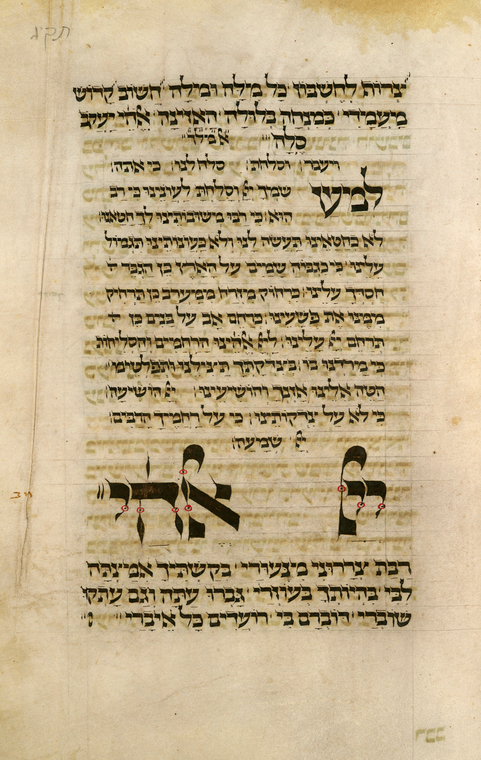 לחשבון כל מילה ומילה חשוב קדוש
במנחה בלולה האזינה אלהי יעקב
סלה אל מלך
ויעבר וסלחת סלח לנו כי אתה
למען שמך יי וסלחת לעונינו כי רב
הוא כי רבו משובותינו לך חטאנו
לא כחטאינו תעשה לנו ולא כעונותינו תגמול
עלינו כי כגבוה שמים על הארץ כן הגבר
חסדך עלינו כרחוק מזרח ממערב כן תרחיק
ממנו את פשעינו כרחם אב על בנים כן
תרחם יי עלינו ליי אלהינו הרחמים והסליחות
כי מרדנו בו בצדקתך תצילנו ותפלטינו
הטה אלינו אזנך והושיענו יי הושיעה
כי לא על צדקותינו כי על רחמיך הרבים
יי שמעה
יי אלהי
רבת צררוני מנעורי בקשתיך אמצה
לבי בהיותך בעוזרי גברו עתה וגם עתקו
שוברי בי רועדים כל איברי